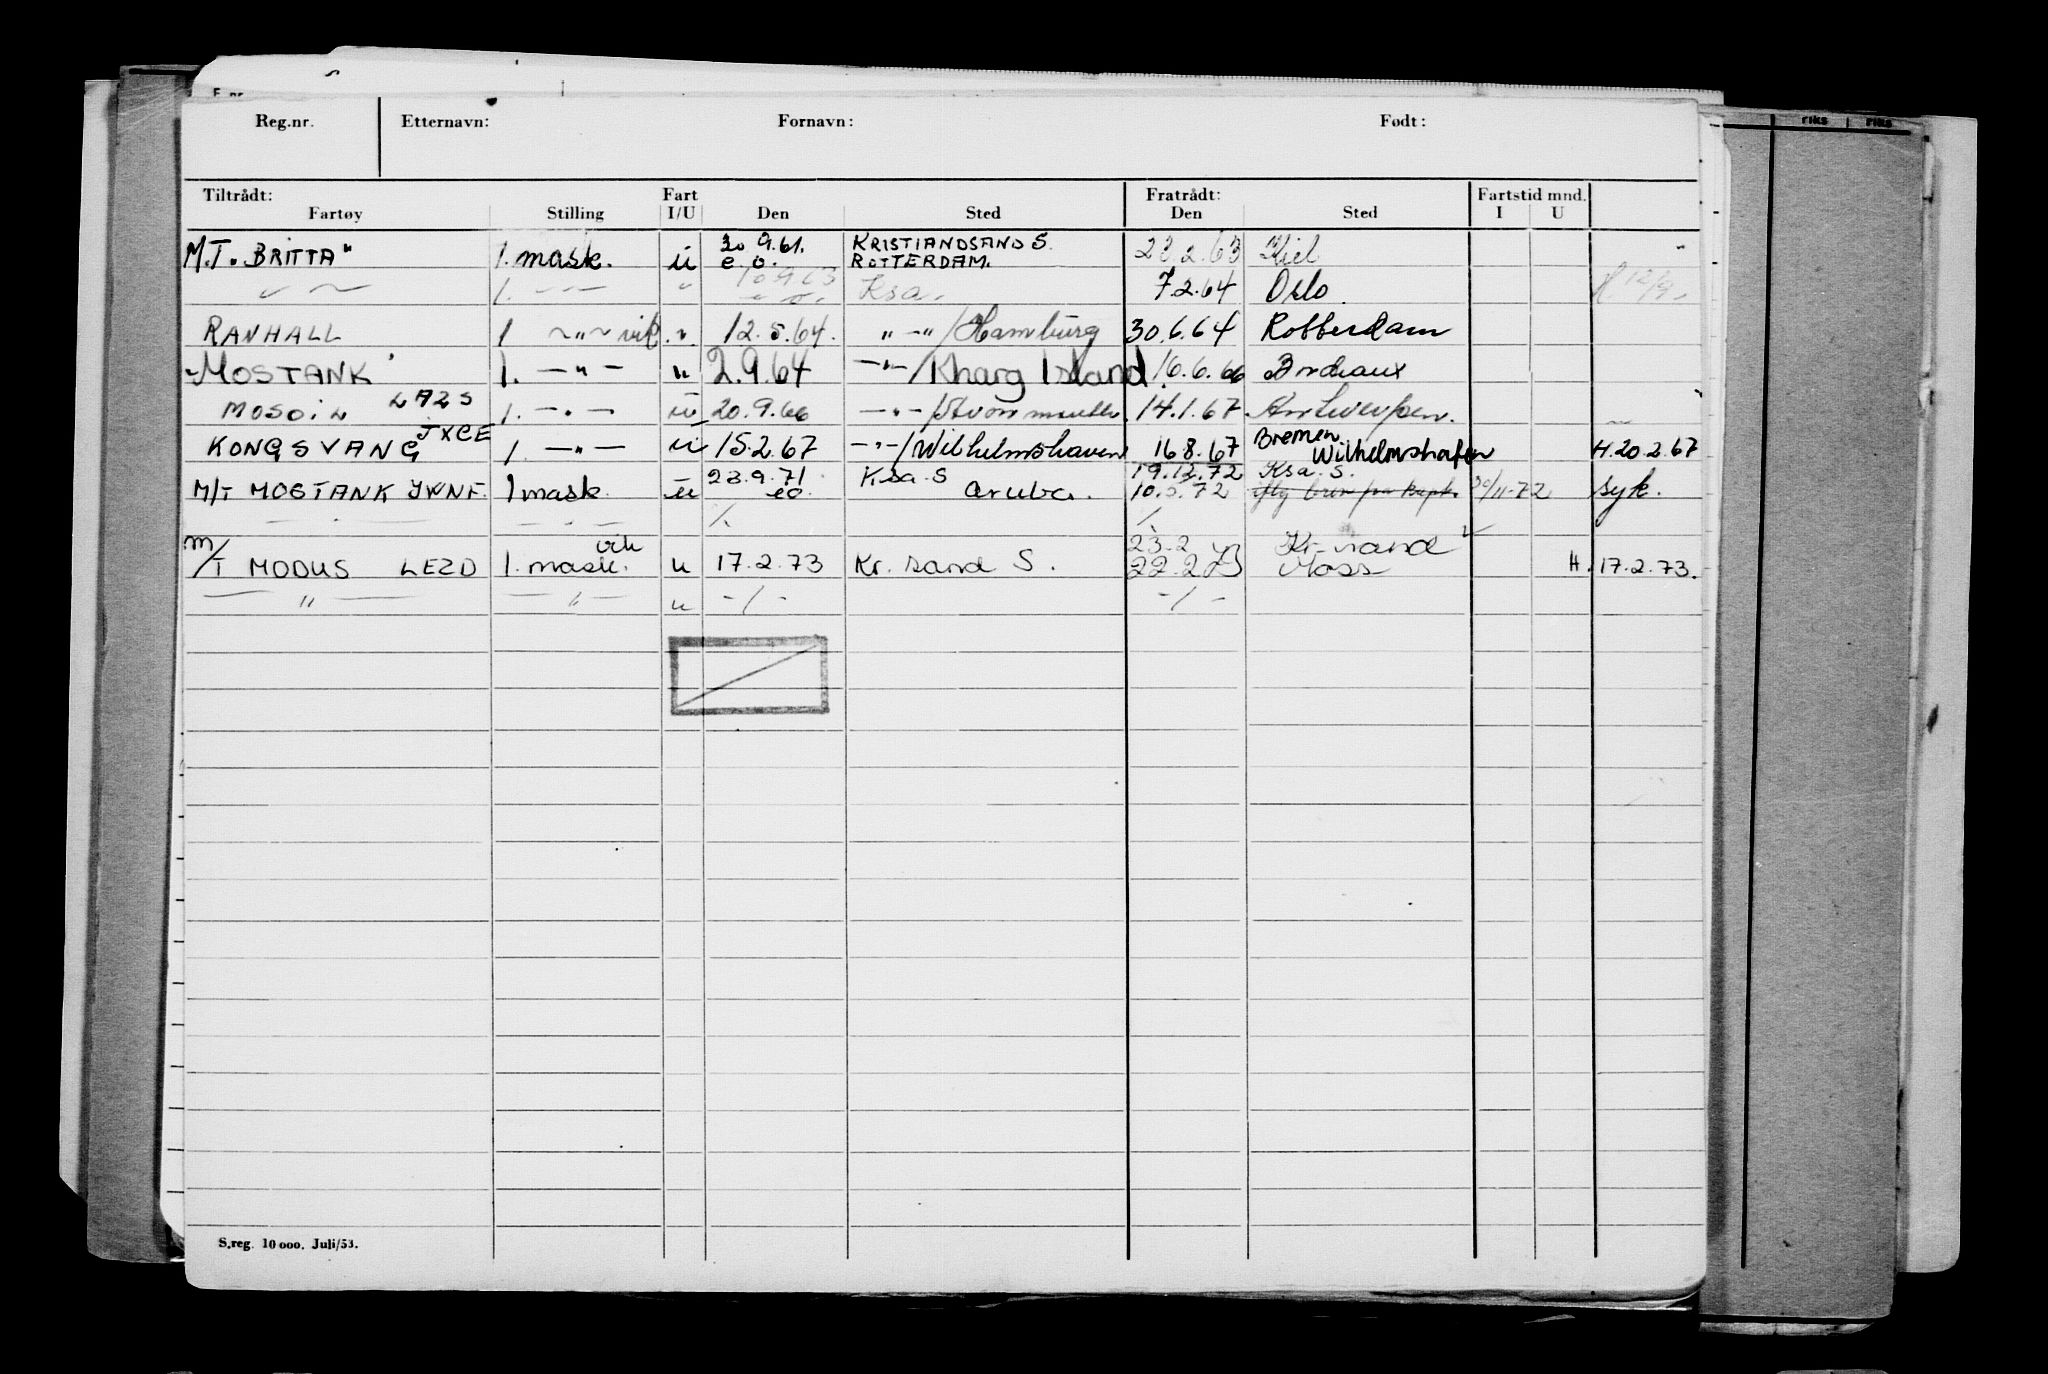 Reg.nr. Etternavn: Fornavn: Født:
Tiltrådt: Fart Fratrådt: Fartstid mnd.
Fartøy Stilling I/U Den Sted Den Sted I U
M.T. "BRITTA" 1. mask. u 30.9.61. KRISTIANDSAND S. 23.2.63 Kiel
e.o. ROTTERDAM.
" 1. " " 10.9.63 Ksa. 7.2.64 Oslo. H 12/9.
RANHALL 1 ~"~ vik. " 12.5.64. " - " / Hamburg 30.6.64 Rotterdam
"MOSTANK" 1. - " - " 2.9.64 - " - / Kharg Island 16.6.66 Bordeaux
MOSOIL LAZS 1. - " - u 20.9.66 - " - / Avonmouth. 14.1.67. Antwerpen.
KONGSVANG JXCE 1. - " - u 15.2.67 - " - / Wilhelmshaven 16.8.67 Bremen Wilhelmshafen H. 20.2.67
23.9.71 Ksa. S 19.12.72 Ksa. S.
M/T MOSTANK JWNF. 1 mask. u eo Aruba. 10.5.72 30/11-72 syk.
- " - - " - /. /.
vik 23.2 Kr.sand
M/T MODUS LEZD 1. mask. u 17.2.73 Kr. sand S. 22.2.73 Moss H. 17.2.73.
- " - - " - u - / - - / -
S.reg. 10 000. Juli/53.
riks riks